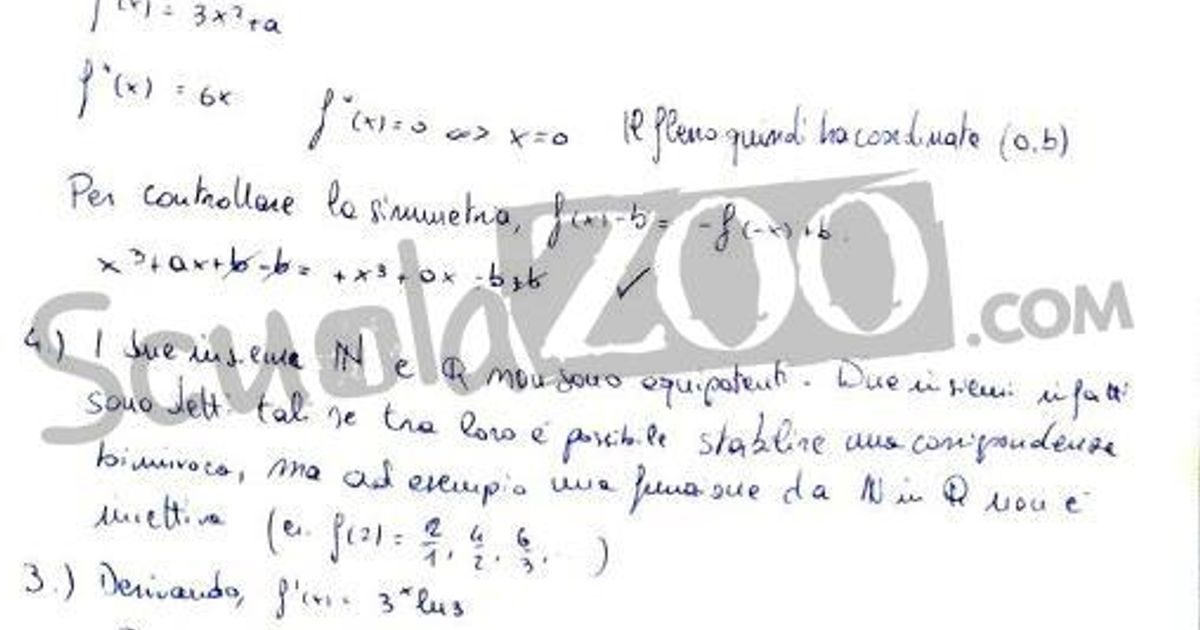 f'(x) = 3x²+a
f''(x) = 6x f''(x)=0 <=> x=0 Il flesso quindi ha coordinate (0,b)
Per controllare la simmetria, f(x)-b = -f(-x)+b.
x³+ax+b-b = +x³+ax -b+b ✓
ScuolaZOO.COM
4.) I due insiemi ℕ e ℚ non sono equipotenti. Due insiemi infatti
sono detti tali se tra loro è possibile stabilire una corrispondenza
biunivoca, ma ad esempio una funzione da ℕ in ℚ non è
iniettiva (es. f(2) = 2/1, 4/2, 6/3, ...)
3.) Derivando, f'(x) = 3ˣ ln3